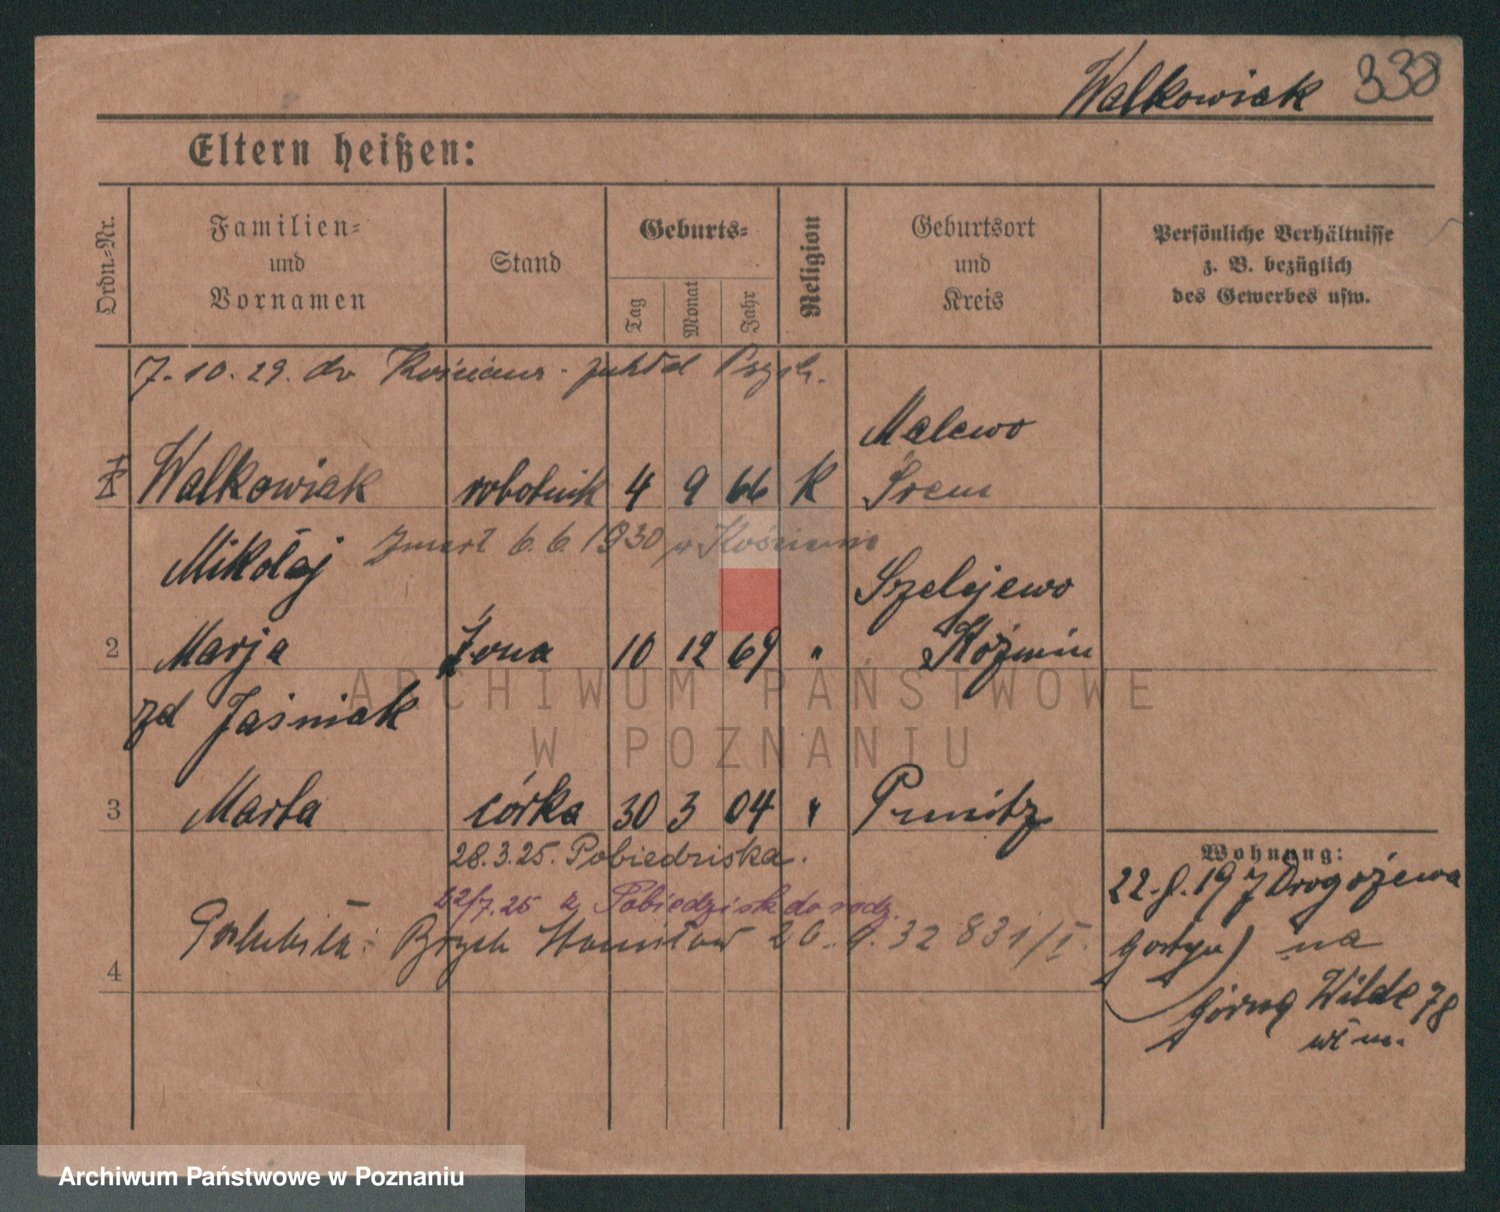 Walkowiak 338
Eltern heißen:
Ordn.-Nr.
Familien-
und
Vornamen
Stand
Geburts-
Tag
Monat
Jahr
Religion
Geburtsort
und
Kreis
Persönliche Verhältnisse
z. B. bezüglich
des Gewerbes usw.
7.10.29. do Zakład Psych.
Malewo
Walkowiak robotnik 4 9 66 K Śrem
Mikołaj Zmarł 6.6.1930 w Kościanie
Szelejewo
2 Marja żona 10 12 69 " Koźmin
zd Jaśniak
3 Marta córka 30 3 04 " Punitz
28.3.25. Pobiedziska.
22/7.25 z Pobiedzisk do rodz.
4 Poślubiła: Stanisław 20.9.32 831/I.
Wohnung:
22.9.19 z Drogożewa
Gostyń) na
Górną Wildę 78
ARCHIWUM PAŃSTWOWE
W POZNANIU
Archiwum Państwowe w Poznaniu